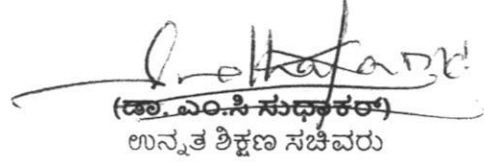 (ಡಾ. ಎಂ.ಸಿ ಸುಧಾಕರ್)
ಉನ್ನತ ಶಿಕ್ಷಣ ಸಚಿವರು